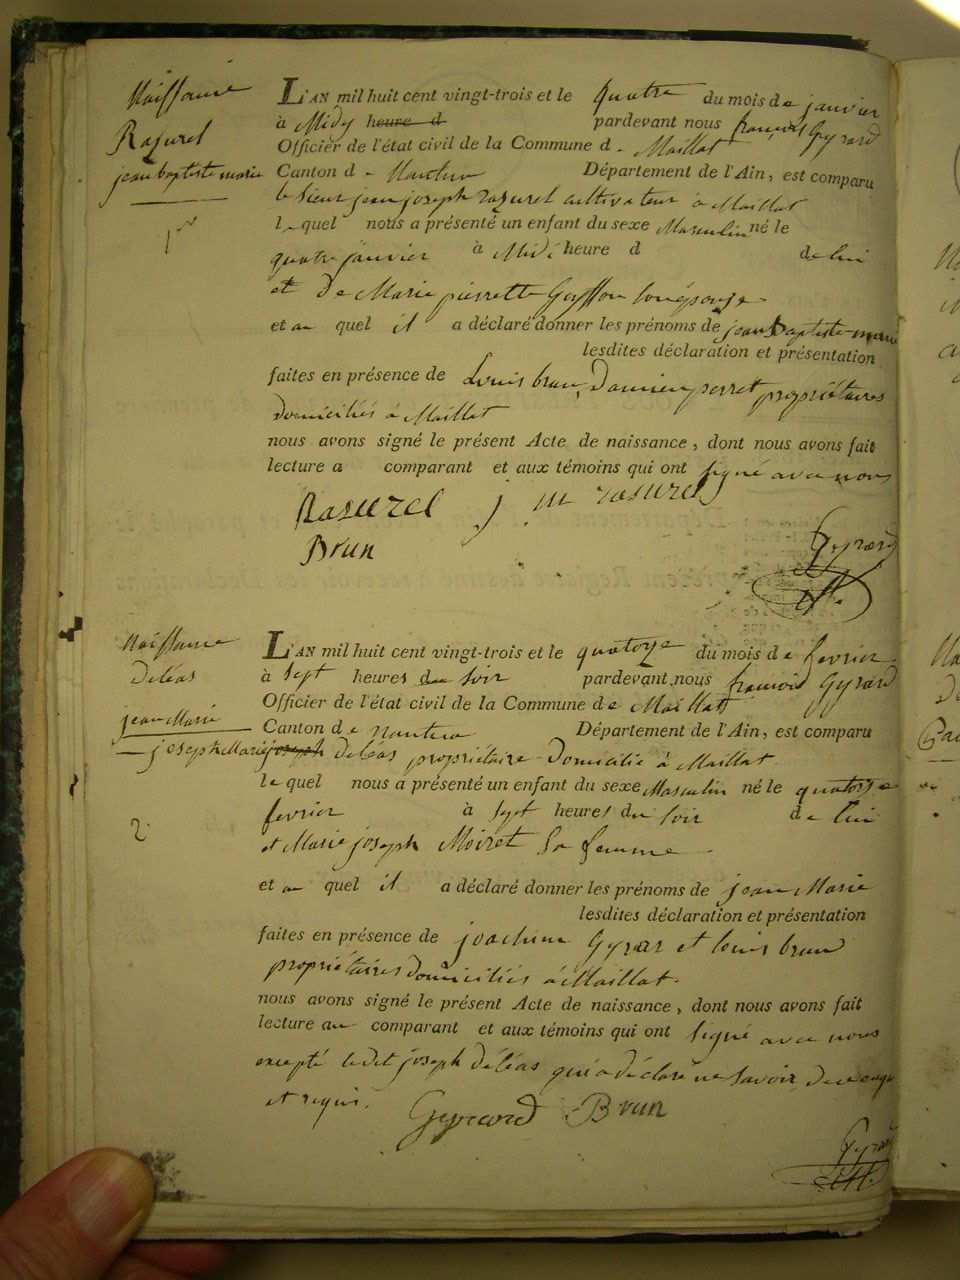 Naissance
Razurel
jean baptiste marie
1er
L'AN mil huit cent vingt-trois et le quatre du mois de janvier
à Midy heure d pardevant nous françois Gyrard
Officier de l'état civil de la Commune d. Maillat
Canton d. Nantua Département de l'Ain, est comparu
le Sieur jean joseph razurel cultivateur à Maillat
lequel nous a présenté un enfant du sexe Masculin né le
quatre janvier à Midi heure d de lui
et De Marie pierrette son épouse
et au quel il a déclaré donner les prénoms de jean Baptiste marie
lesdites déclaration et présentation
faites en présence de Louis brun, Damien perret propriétaires
domiciliés à Maillat
nous avons signé le présent Acte de naissance, dont nous avons fait
lecture a comparant et aux témoins qui ont signé avec nous
Rasurel j m rasurel
Brun
Gyrard
Naissance
Déléas
jean Marie
2.
L'AN mil huit cent vingt-trois et le quatorze du mois de fevrier
à sept heures du soir pardevant nous françois Gyrard
Officier de l'état civil de la Commune de Maillat
Canton de nantua Département de l'Ain, est comparu
joseph Marie joseph Déléas propriétaire Domicilié à Maillat
lequel nous a présenté un enfant du sexe Masculin né le quatorze
fevrier à sept heures du soir de lui
et Marie joseph Moiret Sa femme
et au quel il a déclaré donner les prénoms de jean Marie
lesdites déclaration et présentation
faites en présence de joachim Gyrar et louis brun
propriétaires domiciliés à Maillat.
nous avons signé le présent Acte de naissance, dont nous avons fait
lecture au comparant et aux témoins qui ont signé avec nous
excepté ledit joseph Déléas qui a déclaré ne Savoir De ce enqui
et requis.
Gyrard Brun
Gyrard